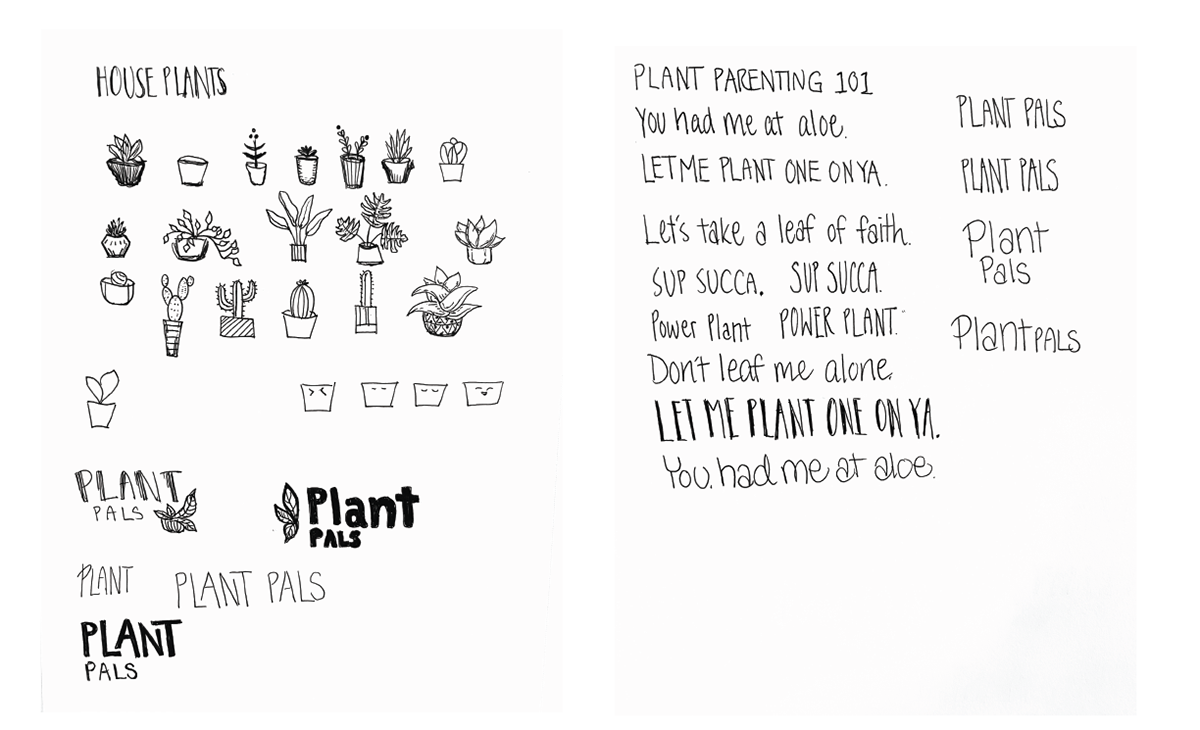 HOUSE PLANTS
PLANT
PALS
Plant
PALS
PLANT
PLANT PALS
PLANT
PALS
PLANT PARENTING 101
You had me at aloe.
LET ME PLANT ONE ON YA.
Let's take a leaf of faith.
SUP SUCCA. SUP SUCCA.
Power Plant POWER PLANT.
Don't leaf me alone.
LET ME PLANT ONE ON YA.
You had me at aloe.
PLANT PALS
PLANT PALS
Plant
Pals
Plant PALS